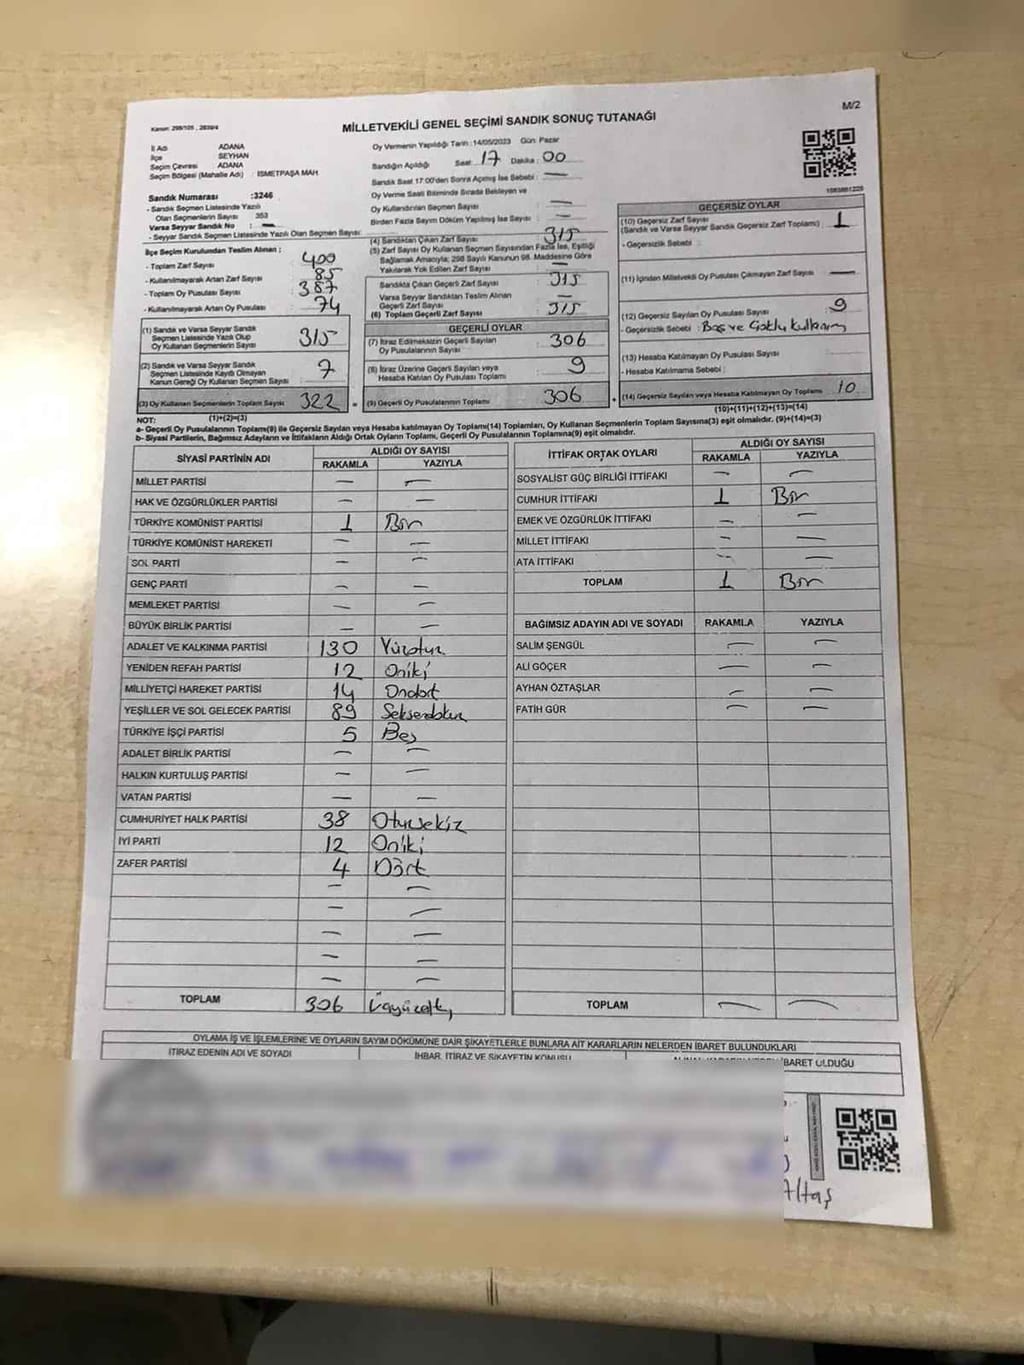 Kanun: 298/105 , 2839/4
M/2
MİLLETVEKİLİ GENEL SEÇİMİ SANDIK SONUÇ TUTANAĞI
İl Adı ADANA
İlçe SEYHAN
Seçim Çevresi ADANA
Seçim Bölgesi (Mahalle Adı) : İSMETPAŞA MAH.
Sandık Numarası :3246
- Sandık Seçmen Listesinde Yazılı
Olan Seçmenlerin Sayısı 353
Varsa Seyyar Sandık No : —
- Seyyar Sandık Seçmen Listesinde Yazılı Olan Seçmen Sayısı:
Oy Vermenin Yapıldığı Tarih :14/05/2023 Gün: Pazar
Sandığın Açıldığı Saat : 17 Dakika : 00
Sandık Saat 17:00'den Sonra Açılmış İse Sebebi : —
Oy Verme Saati Bitiminde Sırada Bekleyen ve
Oy Kullandırılan Seçmen Sayısı : —
Birden Fazla Sayım Döküm Yapılmış İse Sayısı : —
İlçe Seçim Kurulundan Teslim Alınan ;
- Toplam Zarf Sayısı : 400
- Kullanılmayarak Artan Zarf Sayısı : 85
- Toplam Oy Pusulası Sayısı : 387
- Kullanılmayarak Artan Oy Pusulası : 74
(1) Sandık ve Varsa Seyyar Sandık
Seçmen Listesinde Yazılı Olup
Oy Kullanan Seçmenlerin Sayısı : 315
(2) Sandık ve Varsa Seyyar Sandık
Seçmen Listesinde Kayıtlı Olmayan
Kanun Gereği Oy Kullanan Seçmen Sayısı : 7
(3) Oy Kullanan Seçmenlerin Toplam Sayısı 322
(1)+(2)=(3)
(4) Sandıktan Çıkan Zarf Sayısı : 315
(5) Zarf Sayısı Oy Kullanan Seçmen Sayısından Fazla İse, Eşitliği
Sağlamak Amacıyla; 298 Sayılı Kanunun 98. Maddesine Göre
Yakılarak Yok Edilen Zarf Sayısı : —
Sandıkta Çıkan Geçerli Zarf Sayısı : 315
Varsa Seyyar Sandıktan Teslim Alınan
Geçerli Zarf Sayısı : —
(6) Toplam Geçerli Zarf Sayısı : 315
GEÇERLİ OYLAR
(7) İtiraz Edilmeksizin Geçerli Sayılan
Oy Pusulalarının Sayısı : 306
(8) İtiraz Üzerine Geçerli Sayılan veya
Hesaba Katılan Oy Pusulası Toplamı : 9
(9) Geçerli Oy Pusulalarının Toplamı : 306
GEÇERSİZ OYLAR
(10) Geçersiz Zarf Sayısı
(Sandık ve Varsa Seyyar Sandık Geçersiz Zarf Toplamı) : 1
- Geçersizlik Sebebi :
(11) İçinden Milletvekili Oy Pusulası Çıkmayan Zarf Sayısı : —
(12) Geçersiz Sayılan Oy Pusulası Sayısı : 9
- Geçersizlik Sebebi : Boş ve Çoklu Kullanım
(13) Hesaba Katılmayan Oy Pusulası Sayısı :
- Hesaba Katılmama Sebebi :
(14) Geçersiz Sayılan veya Hesaba Katılmayan Oy Toplamı : 10
(10)+(11)+(12)+(13)=(14)
NOT:
a- Geçerli Oy Pusulalarının Toplamı(9) ile Geçersiz Sayılan veya Hesaba katılmayan Oy Toplamı(14) Toplamları, Oy Kullanan Seçmenlerin Toplam Sayısına(3) eşit olmalıdır. (9)+(14)=(3)
b- Siyasi Partilerin, Bağımsız Adayların ve İttifakların Aldığı Ortak Oyların Toplamı, Geçerli Oy Pusulalarının Toplamına(9) eşit olmalıdır.
SİYASİ PARTİNİN ADI ALDIĞI OY SAYISI
RAKAMLA YAZIYLA
MİLLET PARTİSİ — —
HAK VE ÖZGÜRLÜKLER PARTİSİ — —
TÜRKİYE KOMÜNİST PARTİSİ 1 Bir
TÜRKİYE KOMÜNİST HAREKETİ — —
SOL PARTİ — —
GENÇ PARTİ — —
MEMLEKET PARTİSİ — —
BÜYÜK BİRLİK PARTİSİ — —
ADALET VE KALKINMA PARTİSİ 130 Yüzotuz
YENİDEN REFAH PARTİSİ 12 Oniki
MİLLİYETÇİ HAREKET PARTİSİ 14 Ondört
YEŞİLLER VE SOL GELECEK PARTİSİ 89 Seksendokuz
TÜRKİYE İŞÇİ PARTİSİ 5 Beş
ADALET BİRLİK PARTİSİ — —
HALKIN KURTULUŞ PARTİSİ — —
VATAN PARTİSİ — —
CUMHURİYET HALK PARTİSİ 38 Otuzsekiz
İYİ PARTİ 12 Oniki
ZAFER PARTİSİ 4 Dört
— —
— —
— —
— —
— —
TOPLAM 306 Üçyüzaltı
İTTİFAK ORTAK OYLARI ALDIĞI OY SAYISI
RAKAMLA YAZIYLA
SOSYALİST GÜÇ BİRLİĞİ İTTİFAKI — —
CUMHUR İTTİFAKI 1 Bir
EMEK VE ÖZGÜRLÜK İTTİFAKI — —
MİLLET İTTİFAKI — —
ATA İTTİFAKI — —
TOPLAM 1 Bir
BAĞIMSIZ ADAYIN ADI VE SOYADI RAKAMLA YAZIYLA
SALİM ŞENGÜL — —
ALİ GÖÇER — —
AYHAN ÖZTAŞLAR — —
FATİH GÜR — —
TOPLAM — —
OYLAMA İŞ VE İŞLEMLERİNE VE OYLARIN SAYIM DÖKÜMÜNE DAİR ŞİKAYETLERLE BUNLARA AİT KARARLARIN NELERDEN İBARET BULUNDUKLARI
İTİRAZ EDENİN ADI VE SOYADI İHBAR, İTİRAZ VE ŞİKAYETİN KONUSU İBARET OLDUĞU
Altaş